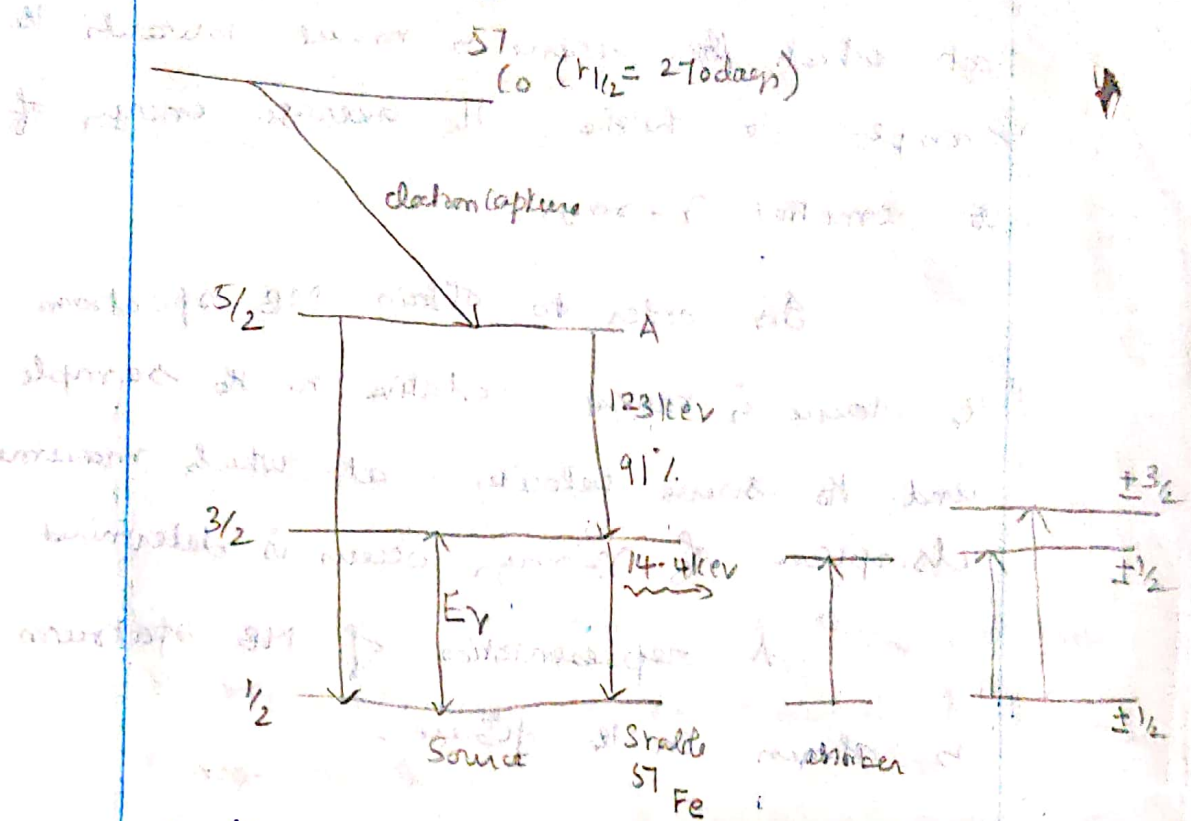 57
Co (t1/2 = 270days)
electron capture
5/2
A
123kev
91%
±3/2
3/2
14.4kev
±1/2
Eγ
1/2
±1/2
Source
Stable
absorber
57
Fe